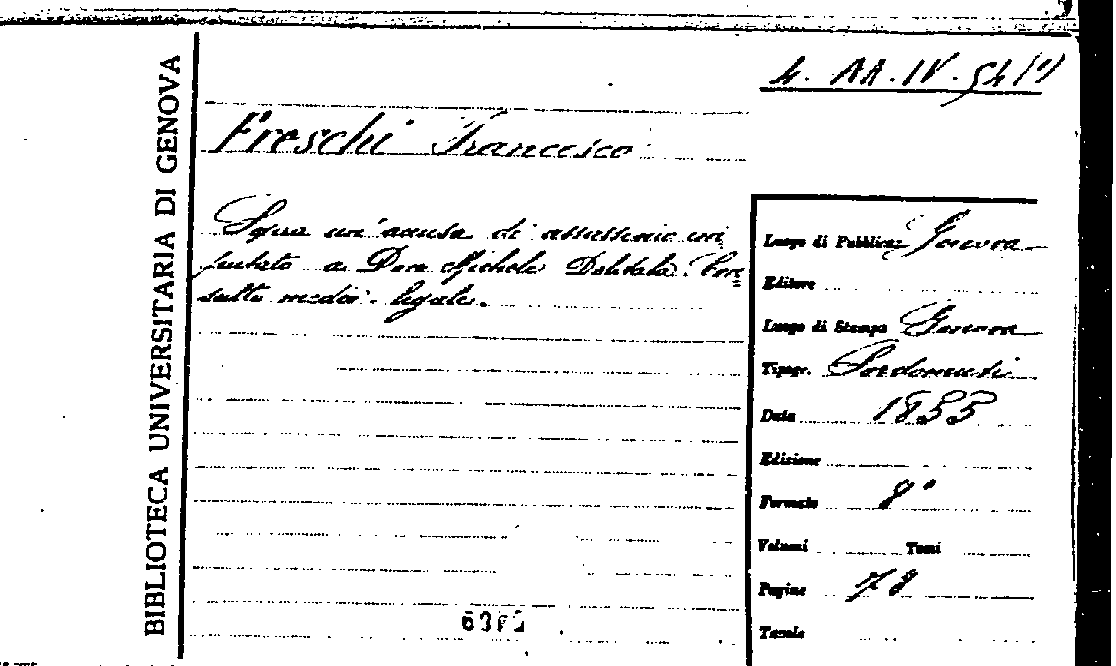 4. AA. IV. 54 (7)
BIBLIOTECA UNIVERSITARIA DI GENOVA
Freschi Francesco
Sopra un'accusa di assassinio im
putato a Dom Michele Con
sulto medico-legale.
Luogo di Pubblicaz. Genova
Editore
Luogo di Stampa Genova
Tipogr. Sordomuti
Data 1855
Edizione
Formato 8°
Volumi Tomi
Pagine 78
Tavole